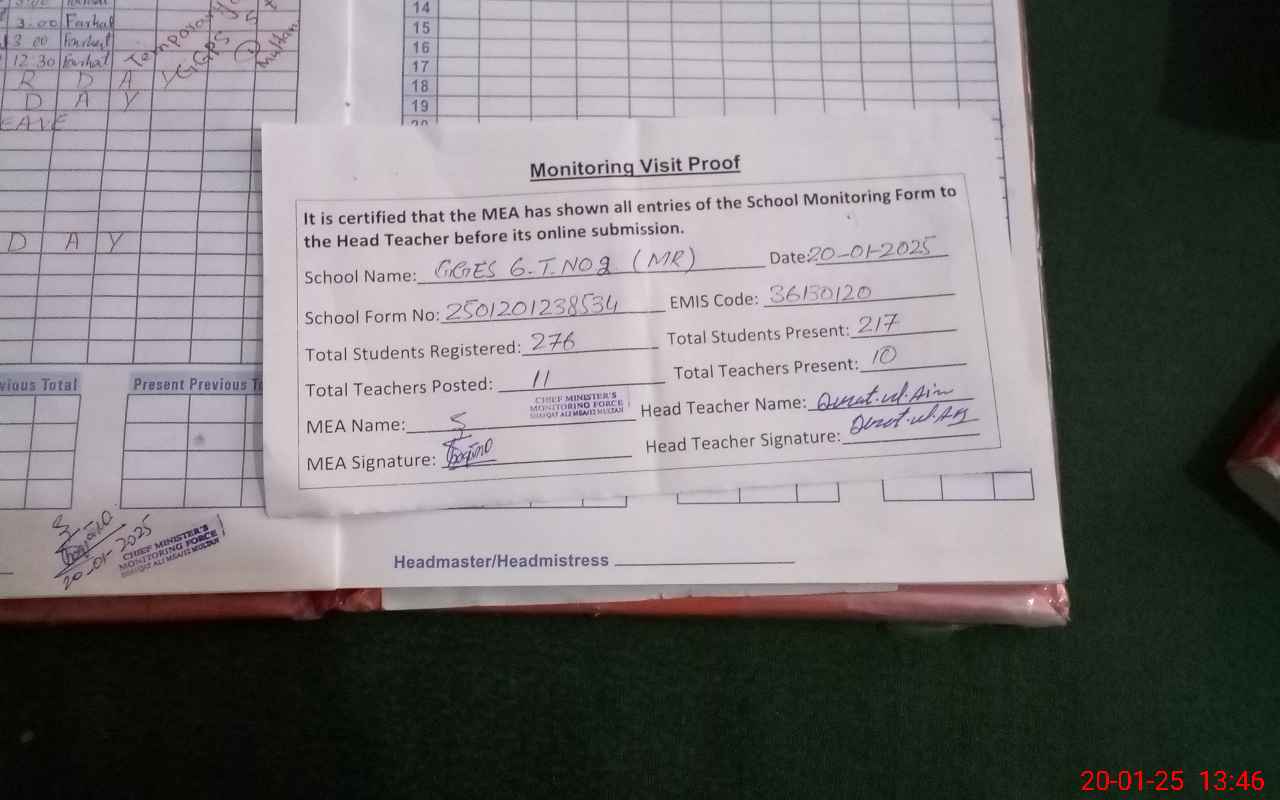 3.00 Farhat
3 00 Farhat
12:30 Farhat
Temporary
GGPS
Multan
R D A Y
D A Y
EAVE
D A Y
14
15
16
17
18
19
20
vious Total
Present Previous To
Monitoring Visit Proof
It is certified that the MEA has shown all entries of the School Monitoring Form to
the Head Teacher before its online submission.
School Name: GGES G.T.NO2 (MR) Date: 20-01-2025
School Form No: 2501201238534 EMIS Code: 36130120
Total Students Registered: 276 Total Students Present: 217
Total Teachers Posted: 11 Total Teachers Present: 10
CHIEF MINISTER'S
MONITORING FORCE
SHAFQAT ALI MEA#12 MULTAN
MEA Name: Head Teacher Name: Qurat.ul.Ain
MEA Signature: Head Teacher Signature: Qurat.ul.Ain
20-01-2025
CHIEF MINISTER'S
MONITORING FORCE
SHAFQAT ALI MEA#12 MULTAN
Headmaster/Headmistress
20-01-25 13:46